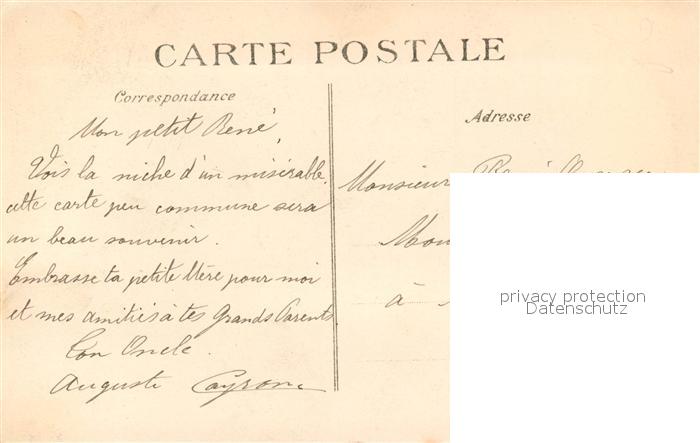 CARTE POSTALE
Correspondance
Adresse
Mon petit René,
Vois la niche d'un misérable,
cette carte peu commune sera
un beau souvenir.
Embrasse ta petite Mère pour moi
et mes amitiés à tes Grands Parents
Ton Oncle.
Auguste Cayrone
Monsieur René
à
privacy protection
Datenschutz